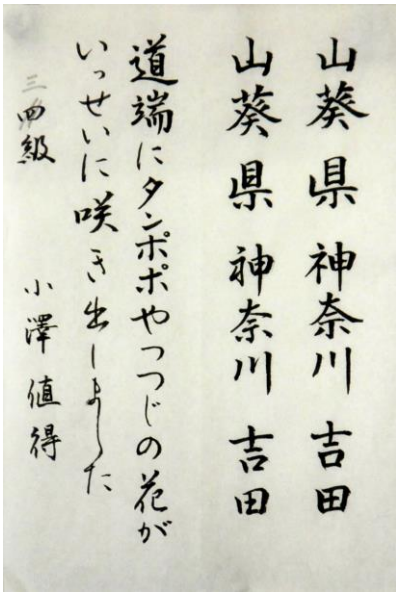 山葵県 神奈川 吉田
山葵県 神奈川 吉田
道端にタンポポやつつじの花が
いっせいに咲き出しました
三四級 小澤 値得